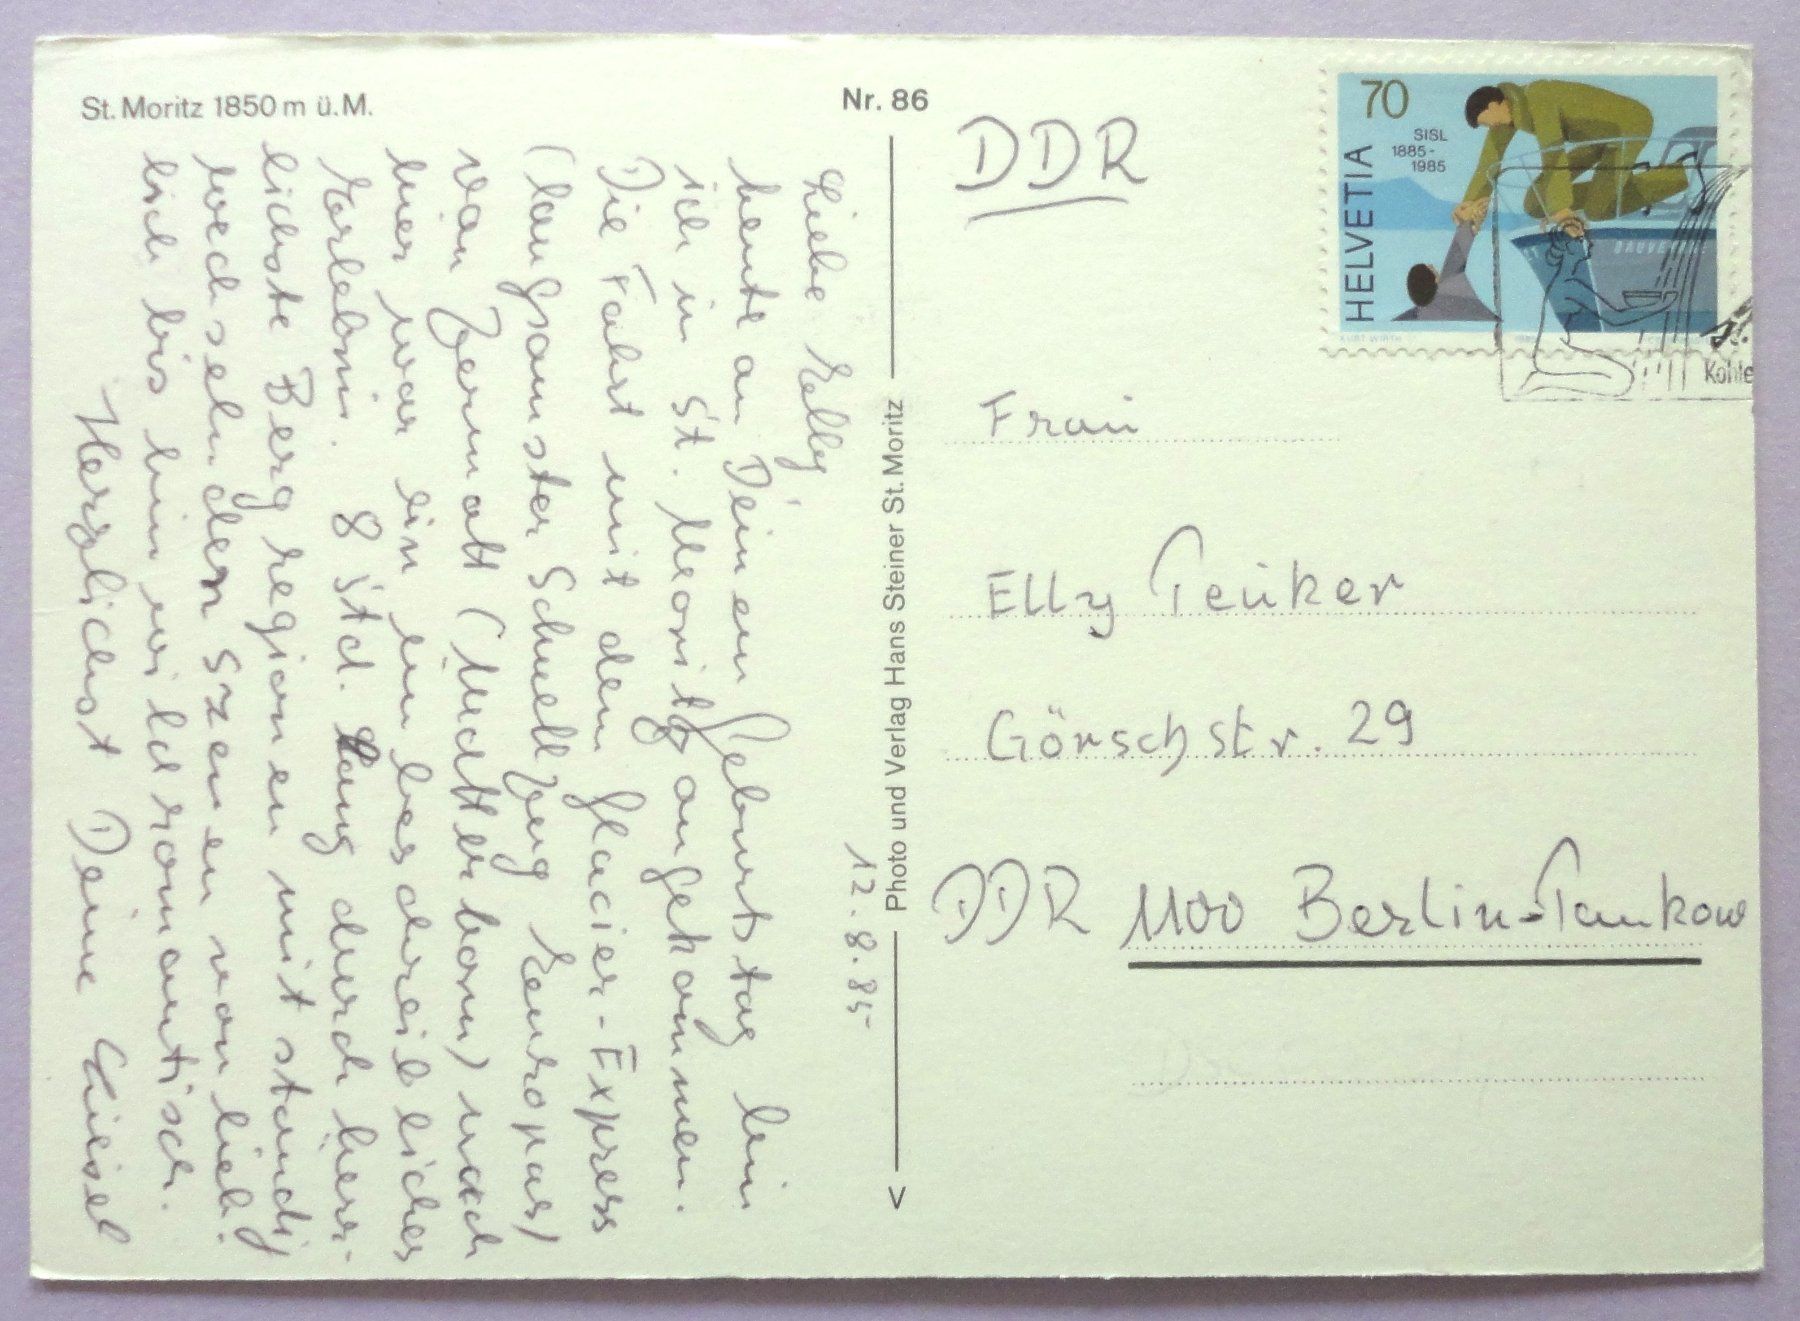 St. Moritz 1850 m ü. M.
Nr. 86
DDR
70
SISL
1885-
1985
HELVETIA
KURT WIRTH
Frau
Elly Teuker
Görschstr. 29
DDR 1100 Berlin-Pankow
Photo und Verlag Hans Steiner St. Moritz
12.8.85
Liebe Kelly
heute an Deinem Geburtstag bin
ich in St. Moritz angekommen.
Die Fahrt mit dem Glacier-Express
(langsamster Schnellzug Europas)
von Zermatt (Matterhorn) nach
hier war ein unbeschreibliches
Erlebnis. 8 Std. lang durch herr-
lichste Bergregionen mit ständig
wechselnden Szenen von lieb-
lich bis hin wildromantisch.
Herzlichst Deine Liesel